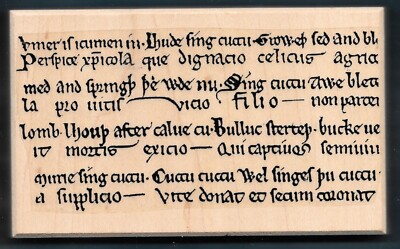 umer is icumen in· Lhude sing cuccu· Groweþ sed and bl
Perspice xp̄icola que dignacio celicus agrico
med and springþ þe wde nu· Sing cuccu Awe blet
la pro uitis vicio filio — non parcen
lomb· lhouþ after calue cu· Bulluc sterteþ· bucke ue
it mortis exicio — Qui captiuos semiuiu
murie sing cuccu· Cuccu cuccu Wel singes þu cuccu·
a supplicio — Vite donat et secum coronat